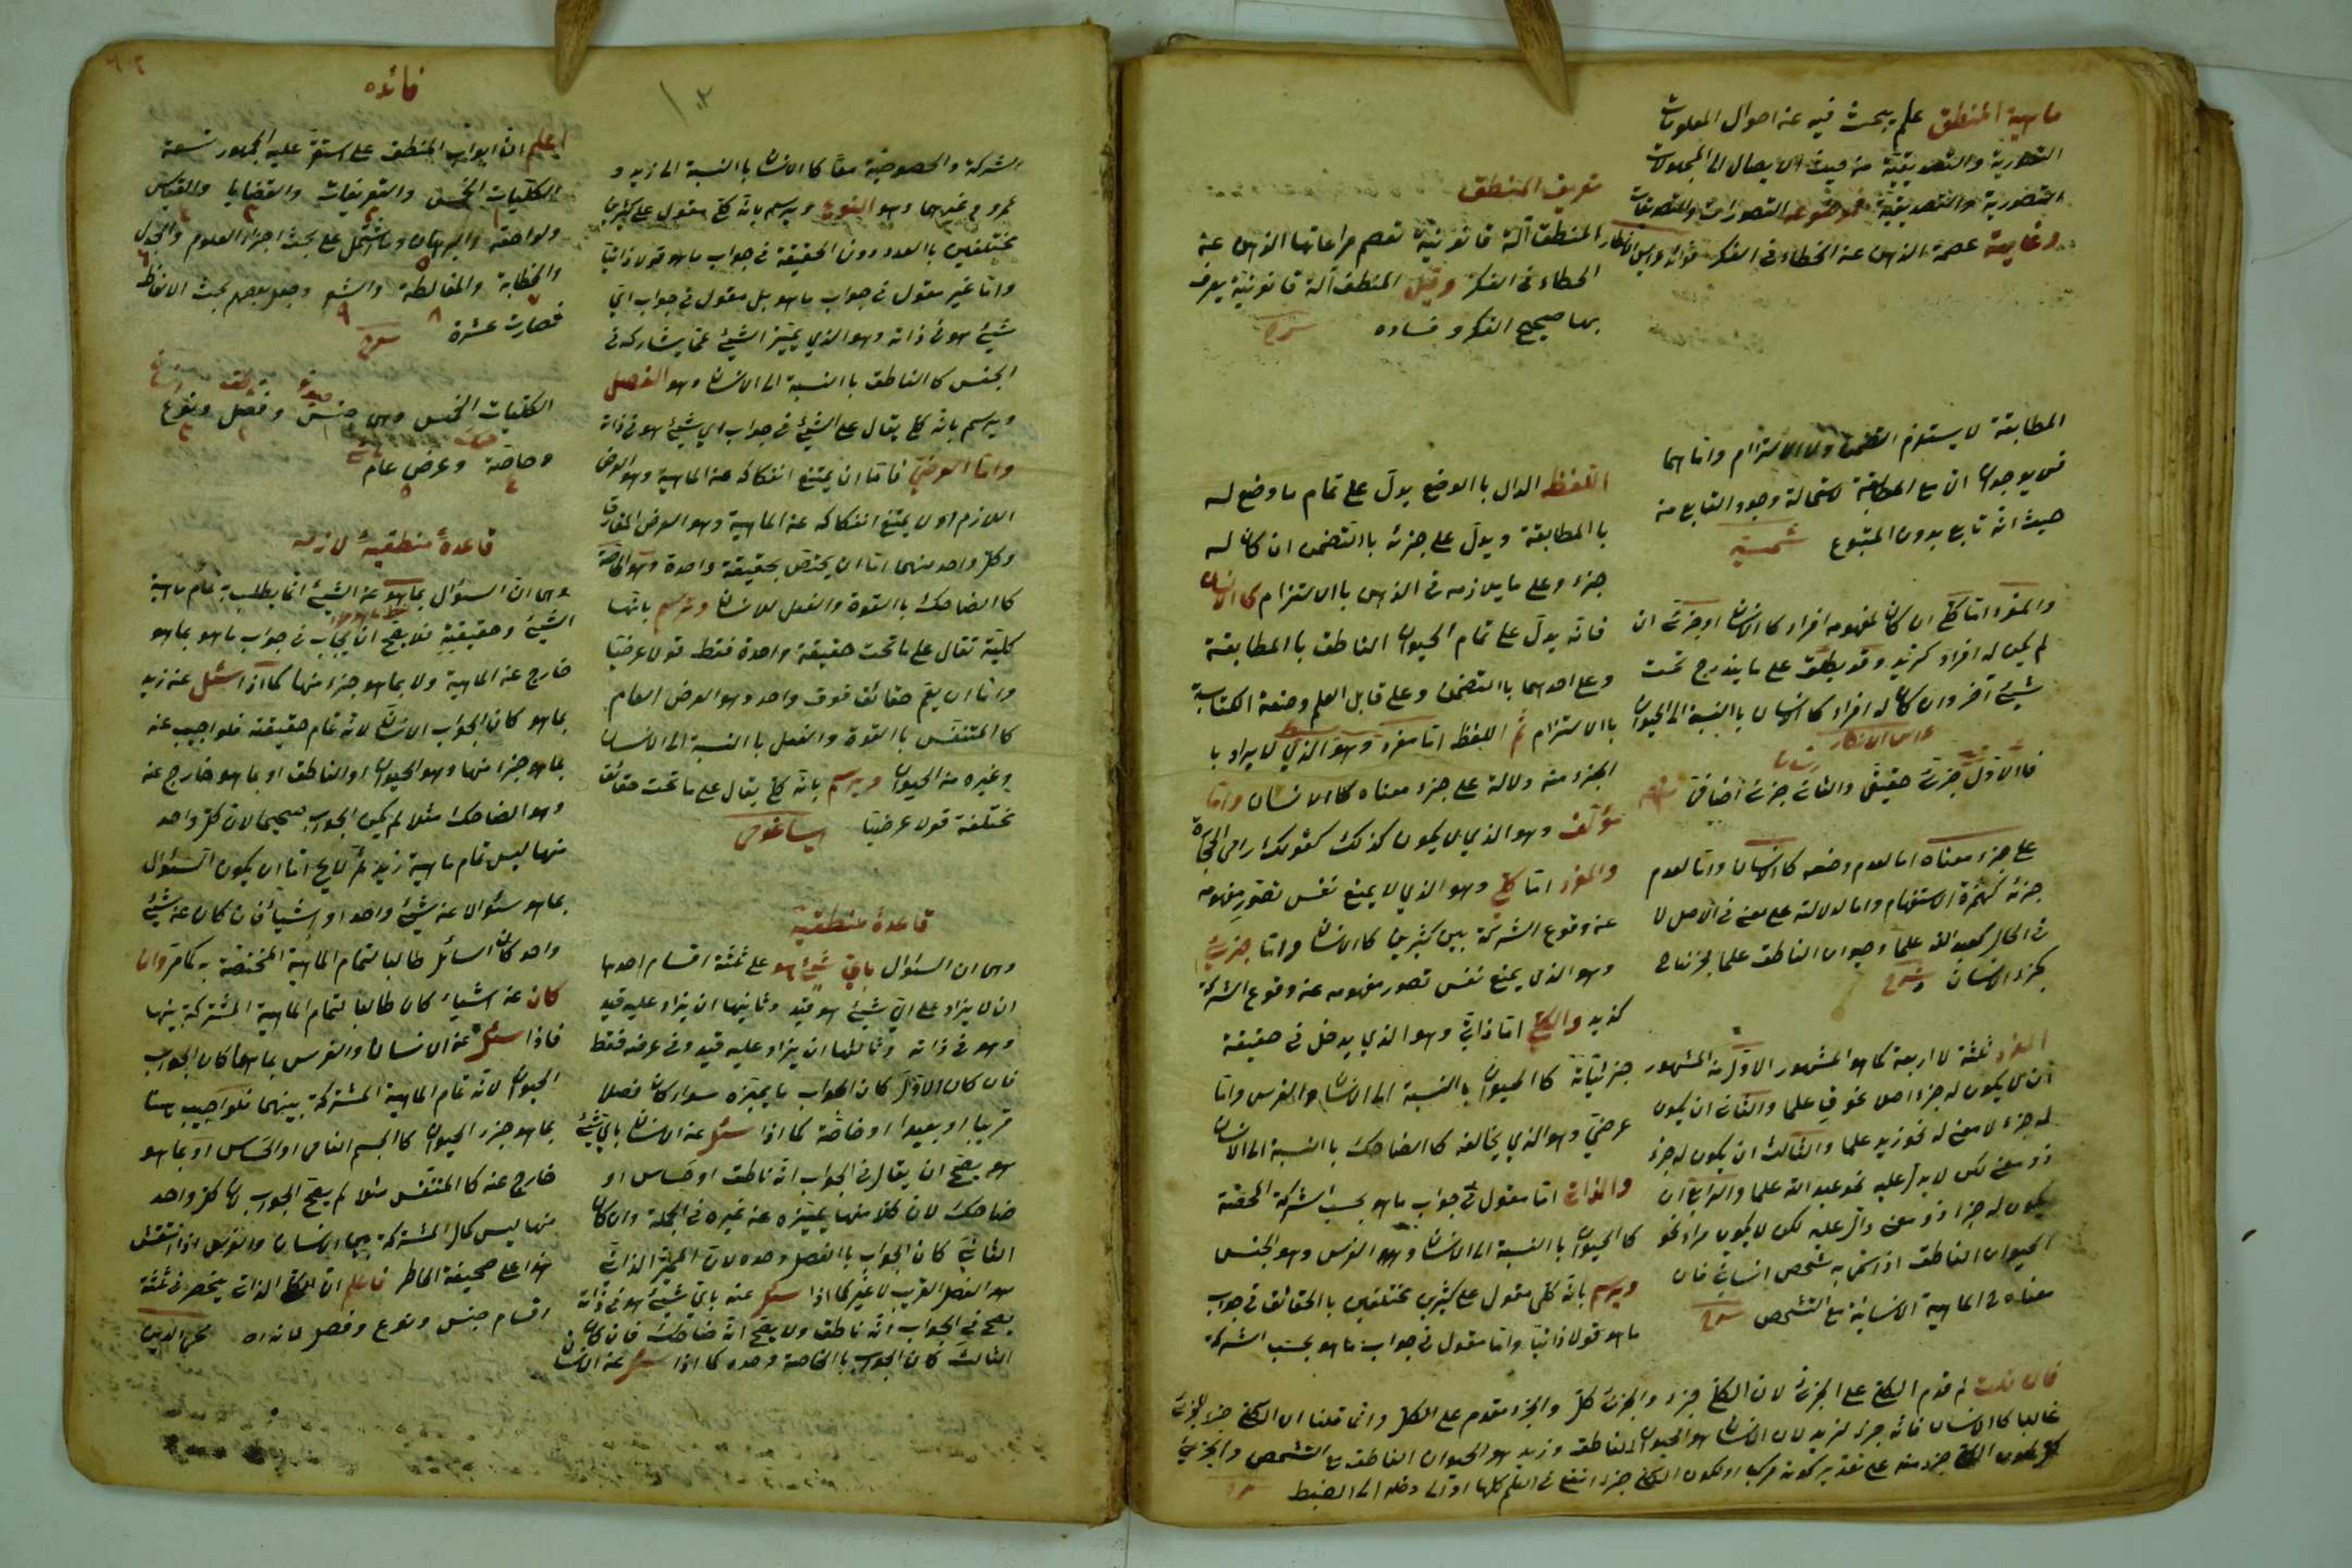 ماهية المنطق علم يبحث فيه عن احوال المعلومات
التصورية والتصديقية من حيث الايصال الى المجهولات
التصورية والتصديقية موضوعه التصورات والتصديقات
وغايته عصمة الذهن عن الخطاء فى الفكر
تعريف المنطق
المنطق آلة قانونية تعصم مراعاتها الذهن عن
الخطاء فى الفكر وقيل المنطق آلة قانونية يعرف
بها صحيح الفكر وفساده
المطابقة لا يستلزم التضمن ولا الالتزام واما هما
فلن يوجدان مع المطابقة لاستحالة وجود التابع من
حيث انه تابع بدون المتبوع شمسيه
والمفرد اما كلي ان كان لمفهومه افراد كالانسان او جزئى ان
لم يكن له افراد كزيد وقد يطلق على ما يندرج تحت
شيئ آخر وان كان له افراد كالانسان بالنسبة الى الحيوان
فالاول جزئى حقيقى والثانى جزئى اضافى
على جزء معناه اما لعدم وضعه كالانسان واما لعدم
جزئه كهمزة الاستفهام واما لدلالته على معنى فى الاصل لا
فى الحال كعبد الله علما وحيوان الناطق علما
المفرد ثلثة لا اربعة كما هو المشهور الاول من المشهور
ان لا يكون له جزء اصلا نحو ق علما والثانى ان يكون
له جزء لا معنى له نحو زيد علما والثالث ان يكون له جزء
ذو معنى لكن لا يدل عليه نحو عبد الله علما والرابع ان
يكون له جزء ذو معنى دال عليه لكن لا يكون مراد نحو
الحيوان الناطق اذا سمى به شخص انسانى فان
معناه ح الماهية الانسانية مع التشخص
اللفظ الدال باالوضع يدل على تمام ما وضع له
باالمطابقة ويدل على جزئه باالتضمن ان كان له
جزء وعلى ما يلازمه فى الذهن باالالتزام كالانسان
فانه يدل على تمام الحيوان الناطق باالمطابقة
وعلى احدهما باالتضمن وعلى قابل العلم وصنعة الكتابة
باالالتزام ثم اللفظ اما مفرد وهو الذي لا يراد با
الجزء منه دلالة على جزء معناه كاالانسان واما
مؤلف وهو الذي لا يكون كذلك كقولك رامى الحجارة
والمفرد اما كلي وهو الذي لا يمنع نفس تصور مفهومه
عن وقوع الشركة بين كثيرين كاالانسان واما جزئي
وهو الذي يمنع نفس تصور مفهومه عن وقوع الشركة
كذيد والكلي اما ذاتي وهو الذي يدخل فى حقيقة
جزئياته كاالحيوان باالنسبة الى الانسان والفرس واما
عرضي وهو الذي يخالفه كاالضاحك باالنسبة الى الانسان
والذاتى اما مقول فى جواب ما هو بحسب الشركة المحضة
كاالحيوان باالنسبة الى الانسان والفرس وهو الجنس
ويرسم بانه كلى مقول على كثيرين مختلفين باالحقائق فى جواب
ما هو قولا ذاتيا واما مقول فى جواب ما هو بحسب الشركة
فان قلت لم قدم الكلي على الجزئى لان الكلي جزء والجزئى كل والجزء مقدم على الكل وانما قلنا ان الكلي جزء للجزئى
غالبا كاالانسان فانه جزء لزيد لان الانسان هو الحيوان الناطق وزيد هو الحيوان الناطق مع التشخص
١٠٢
الشركة والخصوصية معا كاالانسان باالنسبة الى زيد و
عمرو وغيرهما وهو النوع ويرسم بانه كلي مقول على كثيرين
مختلفين باالعدد دون الحقيقة فى جواب ما هو قولا ذاتيا
واما غير مقول فى جواب ما هو بل مقول فى جواب اي
شيئ هو فى ذاته وهو الذي يميز الشيئ عما يشاركه فى
الجنس كاالناطق باالنسبة الى الانسان وهو الفصل
ويرسم بانه كلي يقال على الشيئ فى جواب اي شيئ هو فى ذاته
واما العرضي فاما ان يمتنع انفكاكه عن الماهية وهو العرض
اللازم او لا يمتنع انفكاكه عن الماهية وهو العرض المفارق
وكل واحد منهما اما ان يختص بحقيقة واحدة وهو الخاصة
كاالضاحك باالقوة والفعل للانسان وترسم بانها
كلية تقال على ما تحت حقيقة واحدة فقط قولا عرضيا
واما ان يعم حقائق فوق واحد وهو العرض العام
كاالمتنفس باالقوة والفعل باالنسبة الى الانسان
وغيره من الحيوان ويرسم بانه كلي يقال على ما تحت حقائق
مختلفة قولا عرضيا ايساغوجى
قاعدة منطقية
وهى ان السؤال باي شيئ هو على ثلثة اقسام احدها
ان لا يزاد على اي شيئ هو قيد وثانيها ان يزاد عليه قيد
وهو فى ذاته وثالثها ان يزاد عليه قيد وفى عرضه فقط
فان كان الاول كان الجواب ما يميزه سواء كان فصلا
قريبا او بعيدا او خاصة كما اذا سئل عن الانسان باي شيئ
هو يصح ان يقال فى الجواب انه ناطق او حساس او
ضاحك لان كلا منها يميزه عن غيره فى الجملة وان كان
الثانى كان الجواب باالفصل وحده لان المميز الذاتى
هو الفصل القريب لا غير كما اذا سئل عنه باي شيئ هو فى ذاته
يصح فى الجواب انه ناطق ولا يصح انه ضاحك فان كان
الثالث كان الجواب باالخاصة وحده كما اذا سئل عن الانسان
فائده
اعلم ان ابواب المنطق على استقر عليه الجمهور تسعة
الكليات الخمس والتعريفات والقضايا والقياس
ولواحقه والبرهان وما اشتمل على بحث اجزاء العلوم والجدل
والخطابة والمغالطة والشعر وجعل بعضهم بحث الالفاظ
فصارت عشرة
الكليات الخمس وهى جنس وفصل ونوع
وخاصة وعرض عام
قاعدة منطقية لازمه
وهى ان السؤال بما هو عن الشيئ انما يطلب به تمام ماهية
الشيئ وحقيقيته فلا يصح ان يجاب فى جواب ما هو بما هو
خارج عن الماهية ولا بما هو جزء منها كما اذا سئل عن زيد
بما هو كان الجواب الانسان لانه تمام حقيقته فلو اجيب عنه
بما هو جزء منها وهو الحيوان او الناطق او بما هو خارج عنه
وهو الضاحك مثلا لم يكن الجواب صحيحا لان كل واحد
منها ليس تمام ماهية زيد ثم لا يخ اما ان يكون السئوال
بما هو سئوالا عن شيئ واحد او اشياء فان كان عن شيئ
واحد كان السائل طالبا لتمام الماهية المختصة به كما مر وان
كان عن اشياء كان طالبا لتمام الماهية المشتركة بينها
فاذا سئل عن الانسان والفرس بما هما كان الجواب
الحيوان لانه تمام الماهية المشتركة بينهما فلو اجيب
بما هو جزء الحيوان كاالجسم النامى او الحساس او بما هو
خارج عنه كاالمتنفس مثلا لم يصح الجواب لان كل واحد
منها ليس كمال المشتركة بين الانسان والفرس اذا انتقش
هذا على صحيفة الخاطر فاعلم ان الكلي الذاتى ينحصر فى ثلثة
اقسام جنس ونوع وفصل لانه اه محى الدين